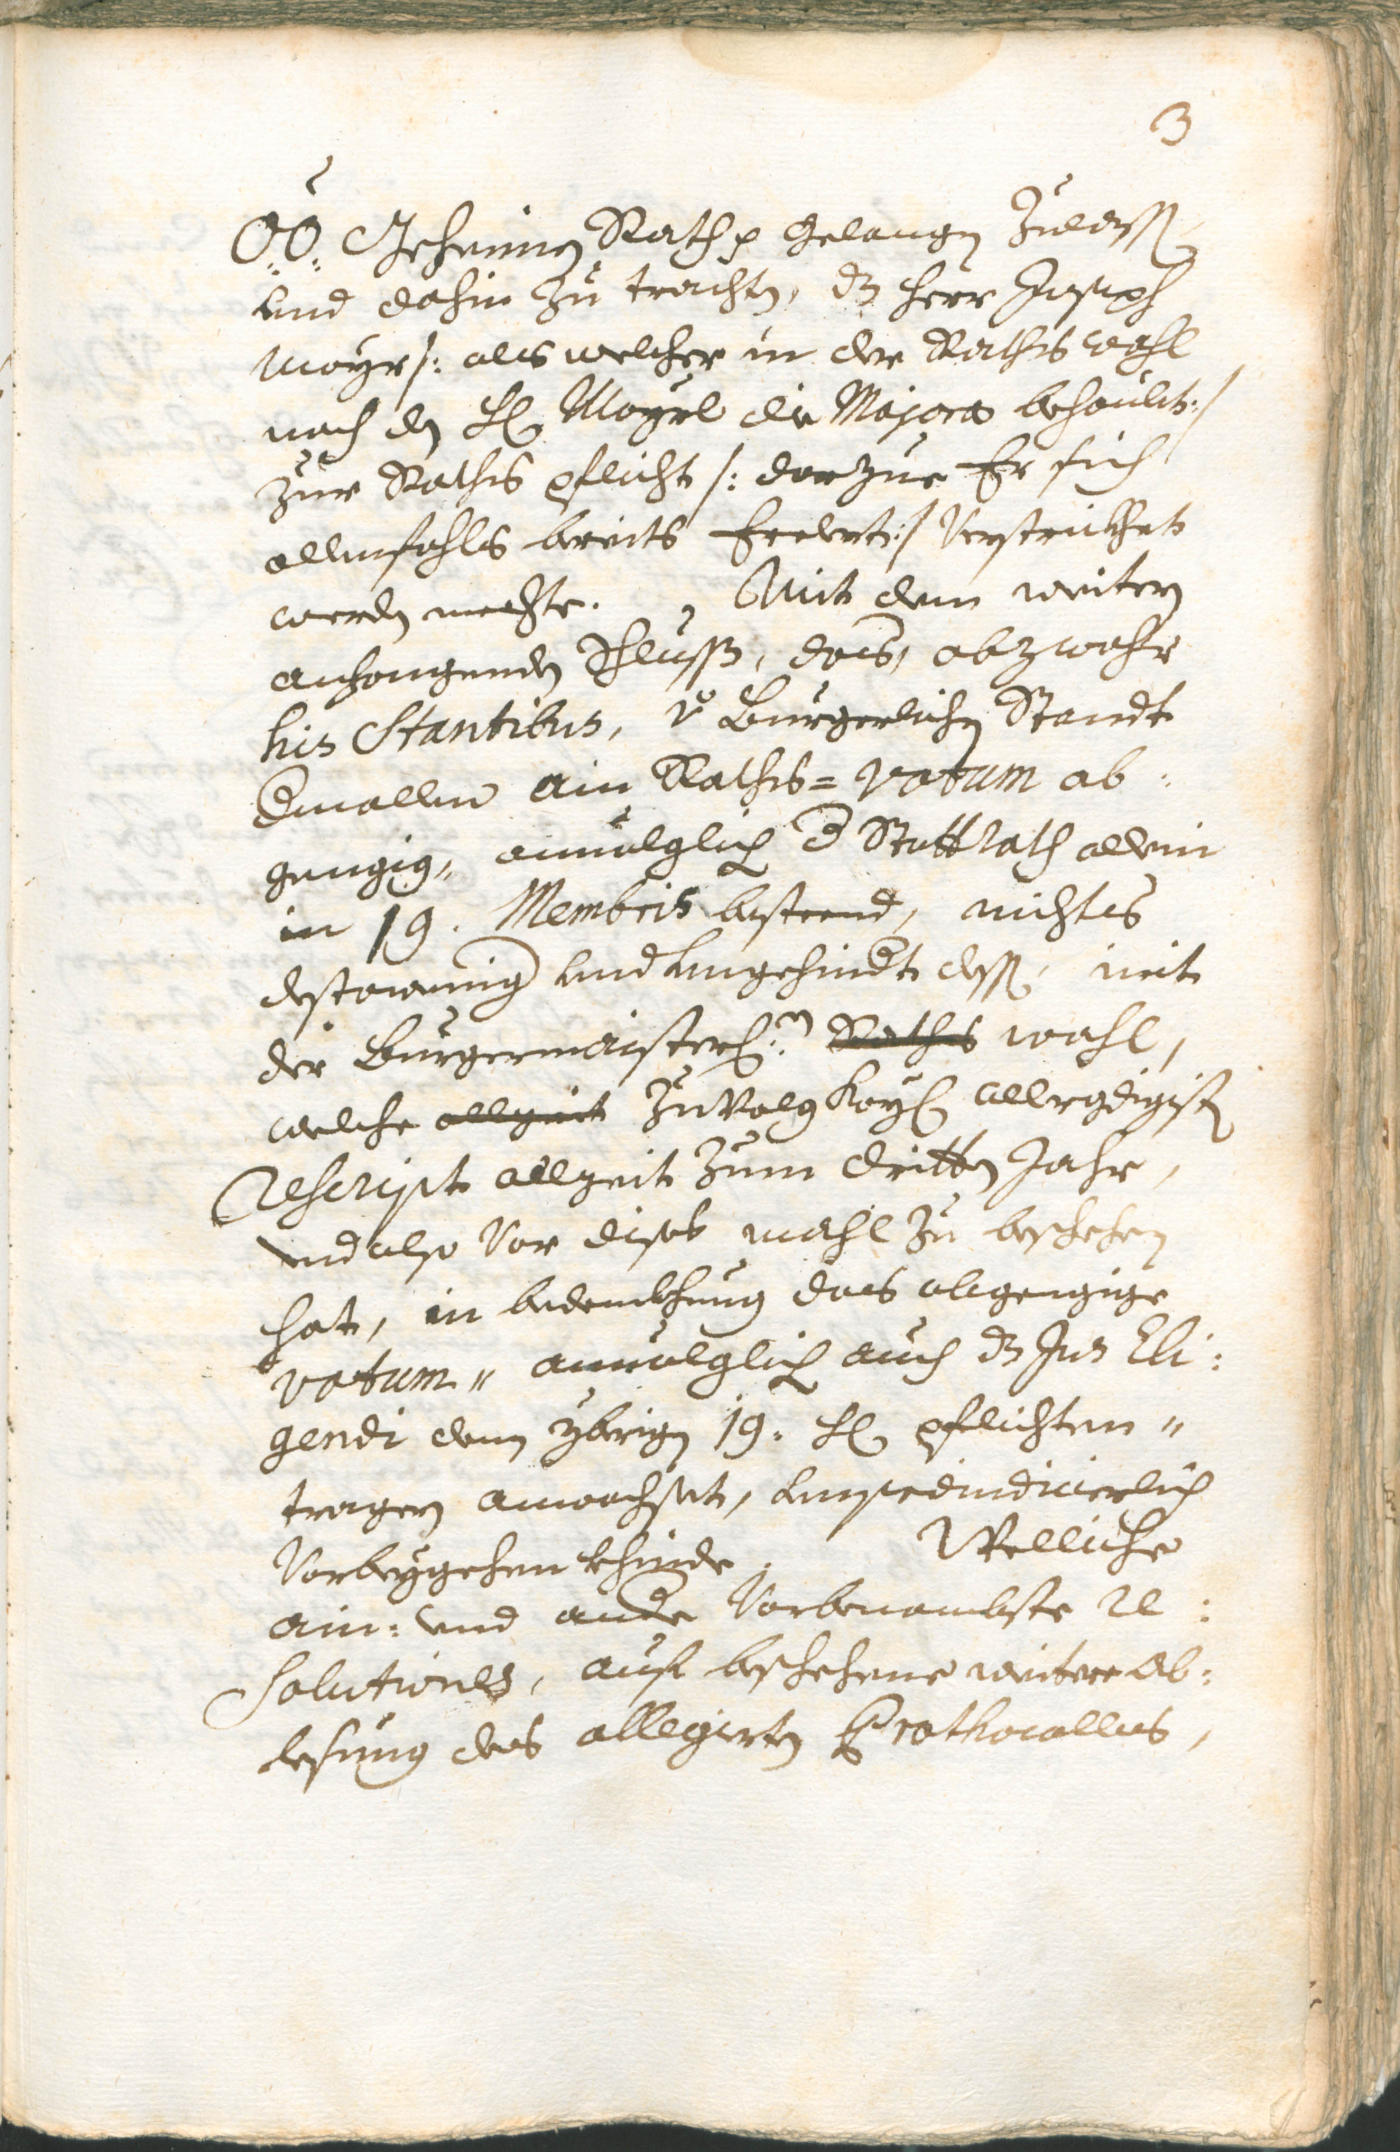 3
OÖ. Gehaimen Rath p gelangen zulassen
und dahin zu trachten, dz Herr Joseph
Mayr /: als welcher in der Raths wahl
nach dem Hl. Mayrl die Majora behaubt :/
zur Raths pflicht /: darzue Er sich
allenfahls bereits Erclert :/ verstrickhet
werden mechte. Mit dem weitern
anhangenden Schluss, dass, obzwahr
his Stantibus, vom Burgerlichen Standt
dermallen ain Raths= votum ab:
gengig, ainuolglich der Statt Rath allein
in 19. Membris besteend, nichts
destoweniger und Ungehindert dessen, mit
der Burgermaisterlichen Raths wahl,
welche allzeit zuvolg Kayl. allergdigisten
Rescript allzeit zum dritten Jahr,
und also vor dises mahl zu beschehen
hat, in bedenckhung das abgengige
votum „ ainuolglich auch dz Jus Eli:
gendi denen ybrigen 19. Hl. pflichten „
tragern anwachset, unpraeiudicierlich
vorbeygehen khinde. Welliche
ain: und andere vorbenambste Re:
solutiones, auf beschehene weitere Ab:
lesung des allegierten Prothocolls,